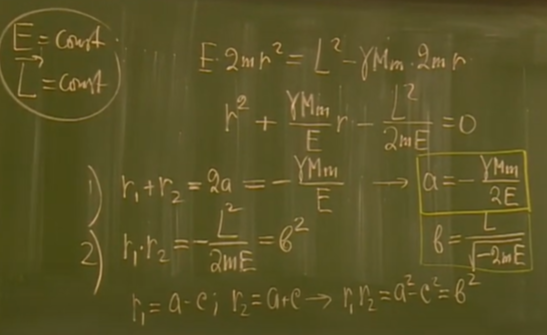 E = const.
L⃗ = const
E·2mr² = L² - γMm·2mr
r² + γMm/E r - L²/2mE = 0
1) r₁+r₂ = 2a = - γMm/E → a = - γMm/2E
2) r₁·r₂ = - L²/2mE = b² b = L/√-2mE
r₁ = a-c; r₂ = a+c → r₁r₂ = a²-c² = b²